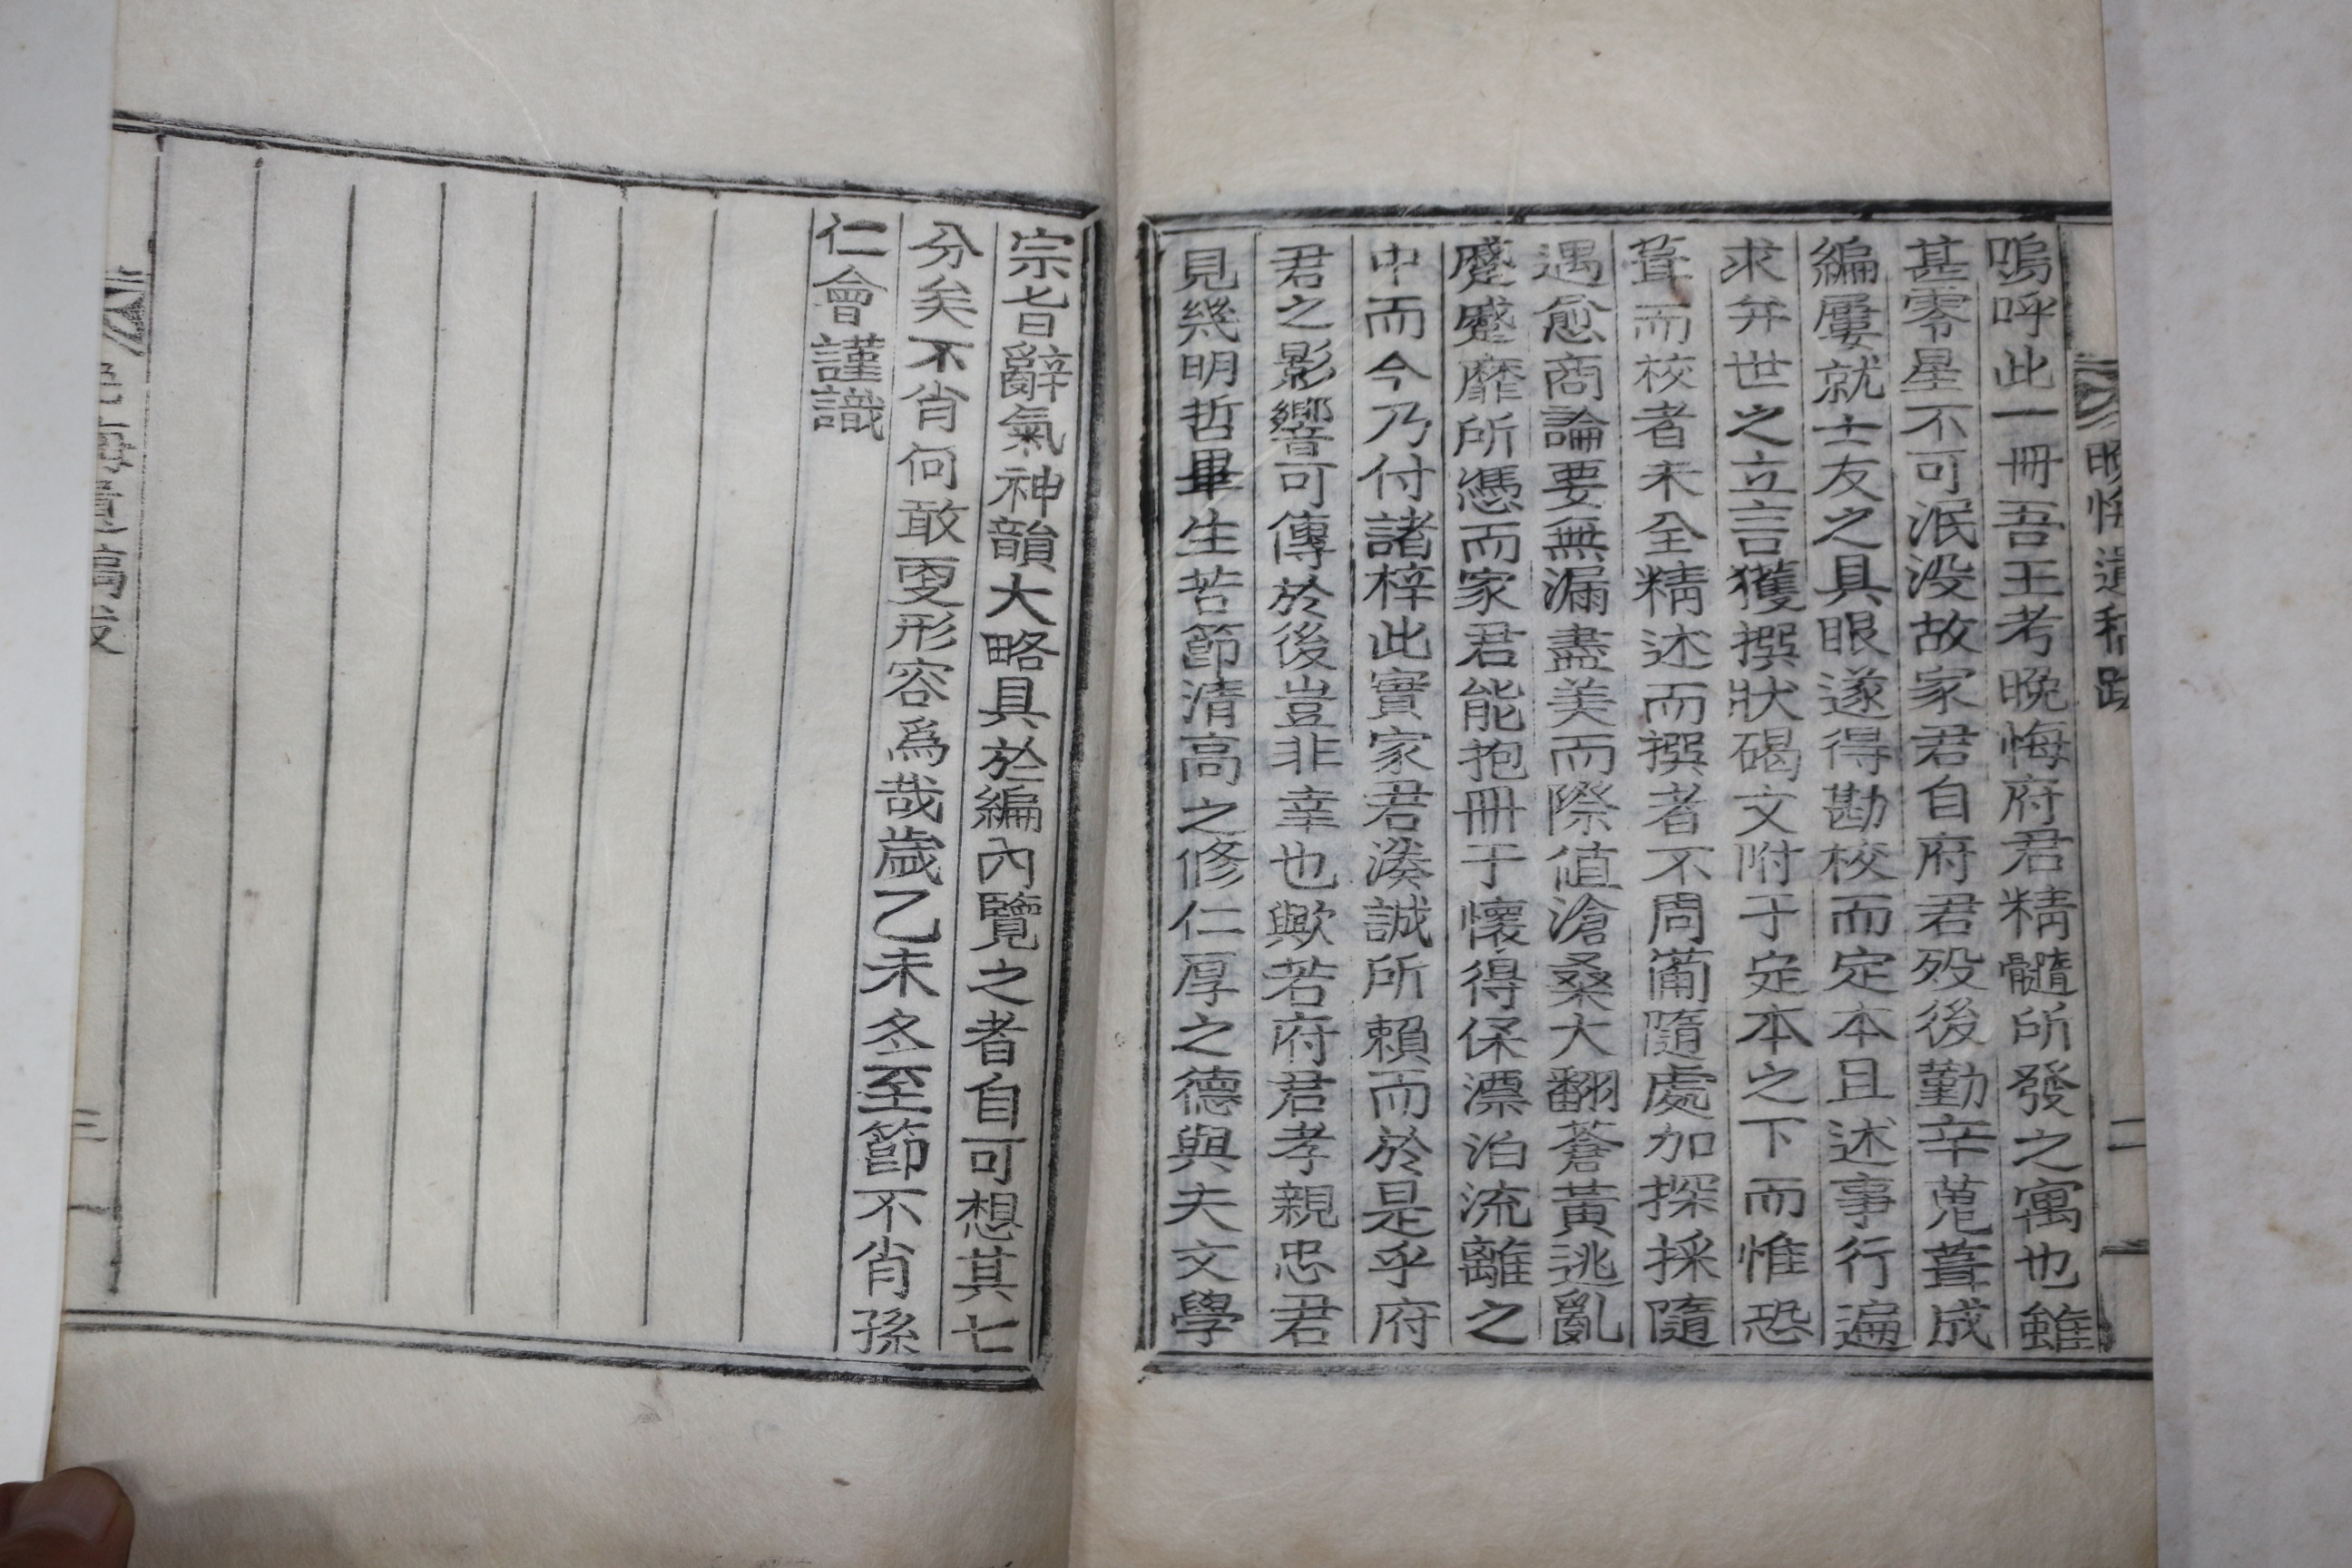 晩悔遺稿跋
二
嗚呼此一冊吾王考晩悔府君精髓所發之寓也雖
甚零星不可泯没故家君自府君歿後勤辛蒐葺成
編屢就士友之具眼遂得勘校而定本且述事行遍
求弁世之立言獲撰狀碣文附于定本之下而惟恐
葺而校者未全精述而撰者不周葡隨處加探採隨
遇愈商論要無漏盡美而際値滄桑大翻蒼黃逃亂
蹙蹙靡所憑而家君能抱冊于懷得保漂泊流離之
中而今乃付諸梓此實家君湊誠所賴而於是乎府
君之影響可傳於後豈非幸也歟若府君孝親忠君
見幾明哲畢生苦節清高之修仁厚之德與夫文學
宗旨辭氣神韻大略具於編內覽之者自可想其七
分矣不肖何敢更形容爲哉歲乙未冬至節不肖孫
仁會謹識
三